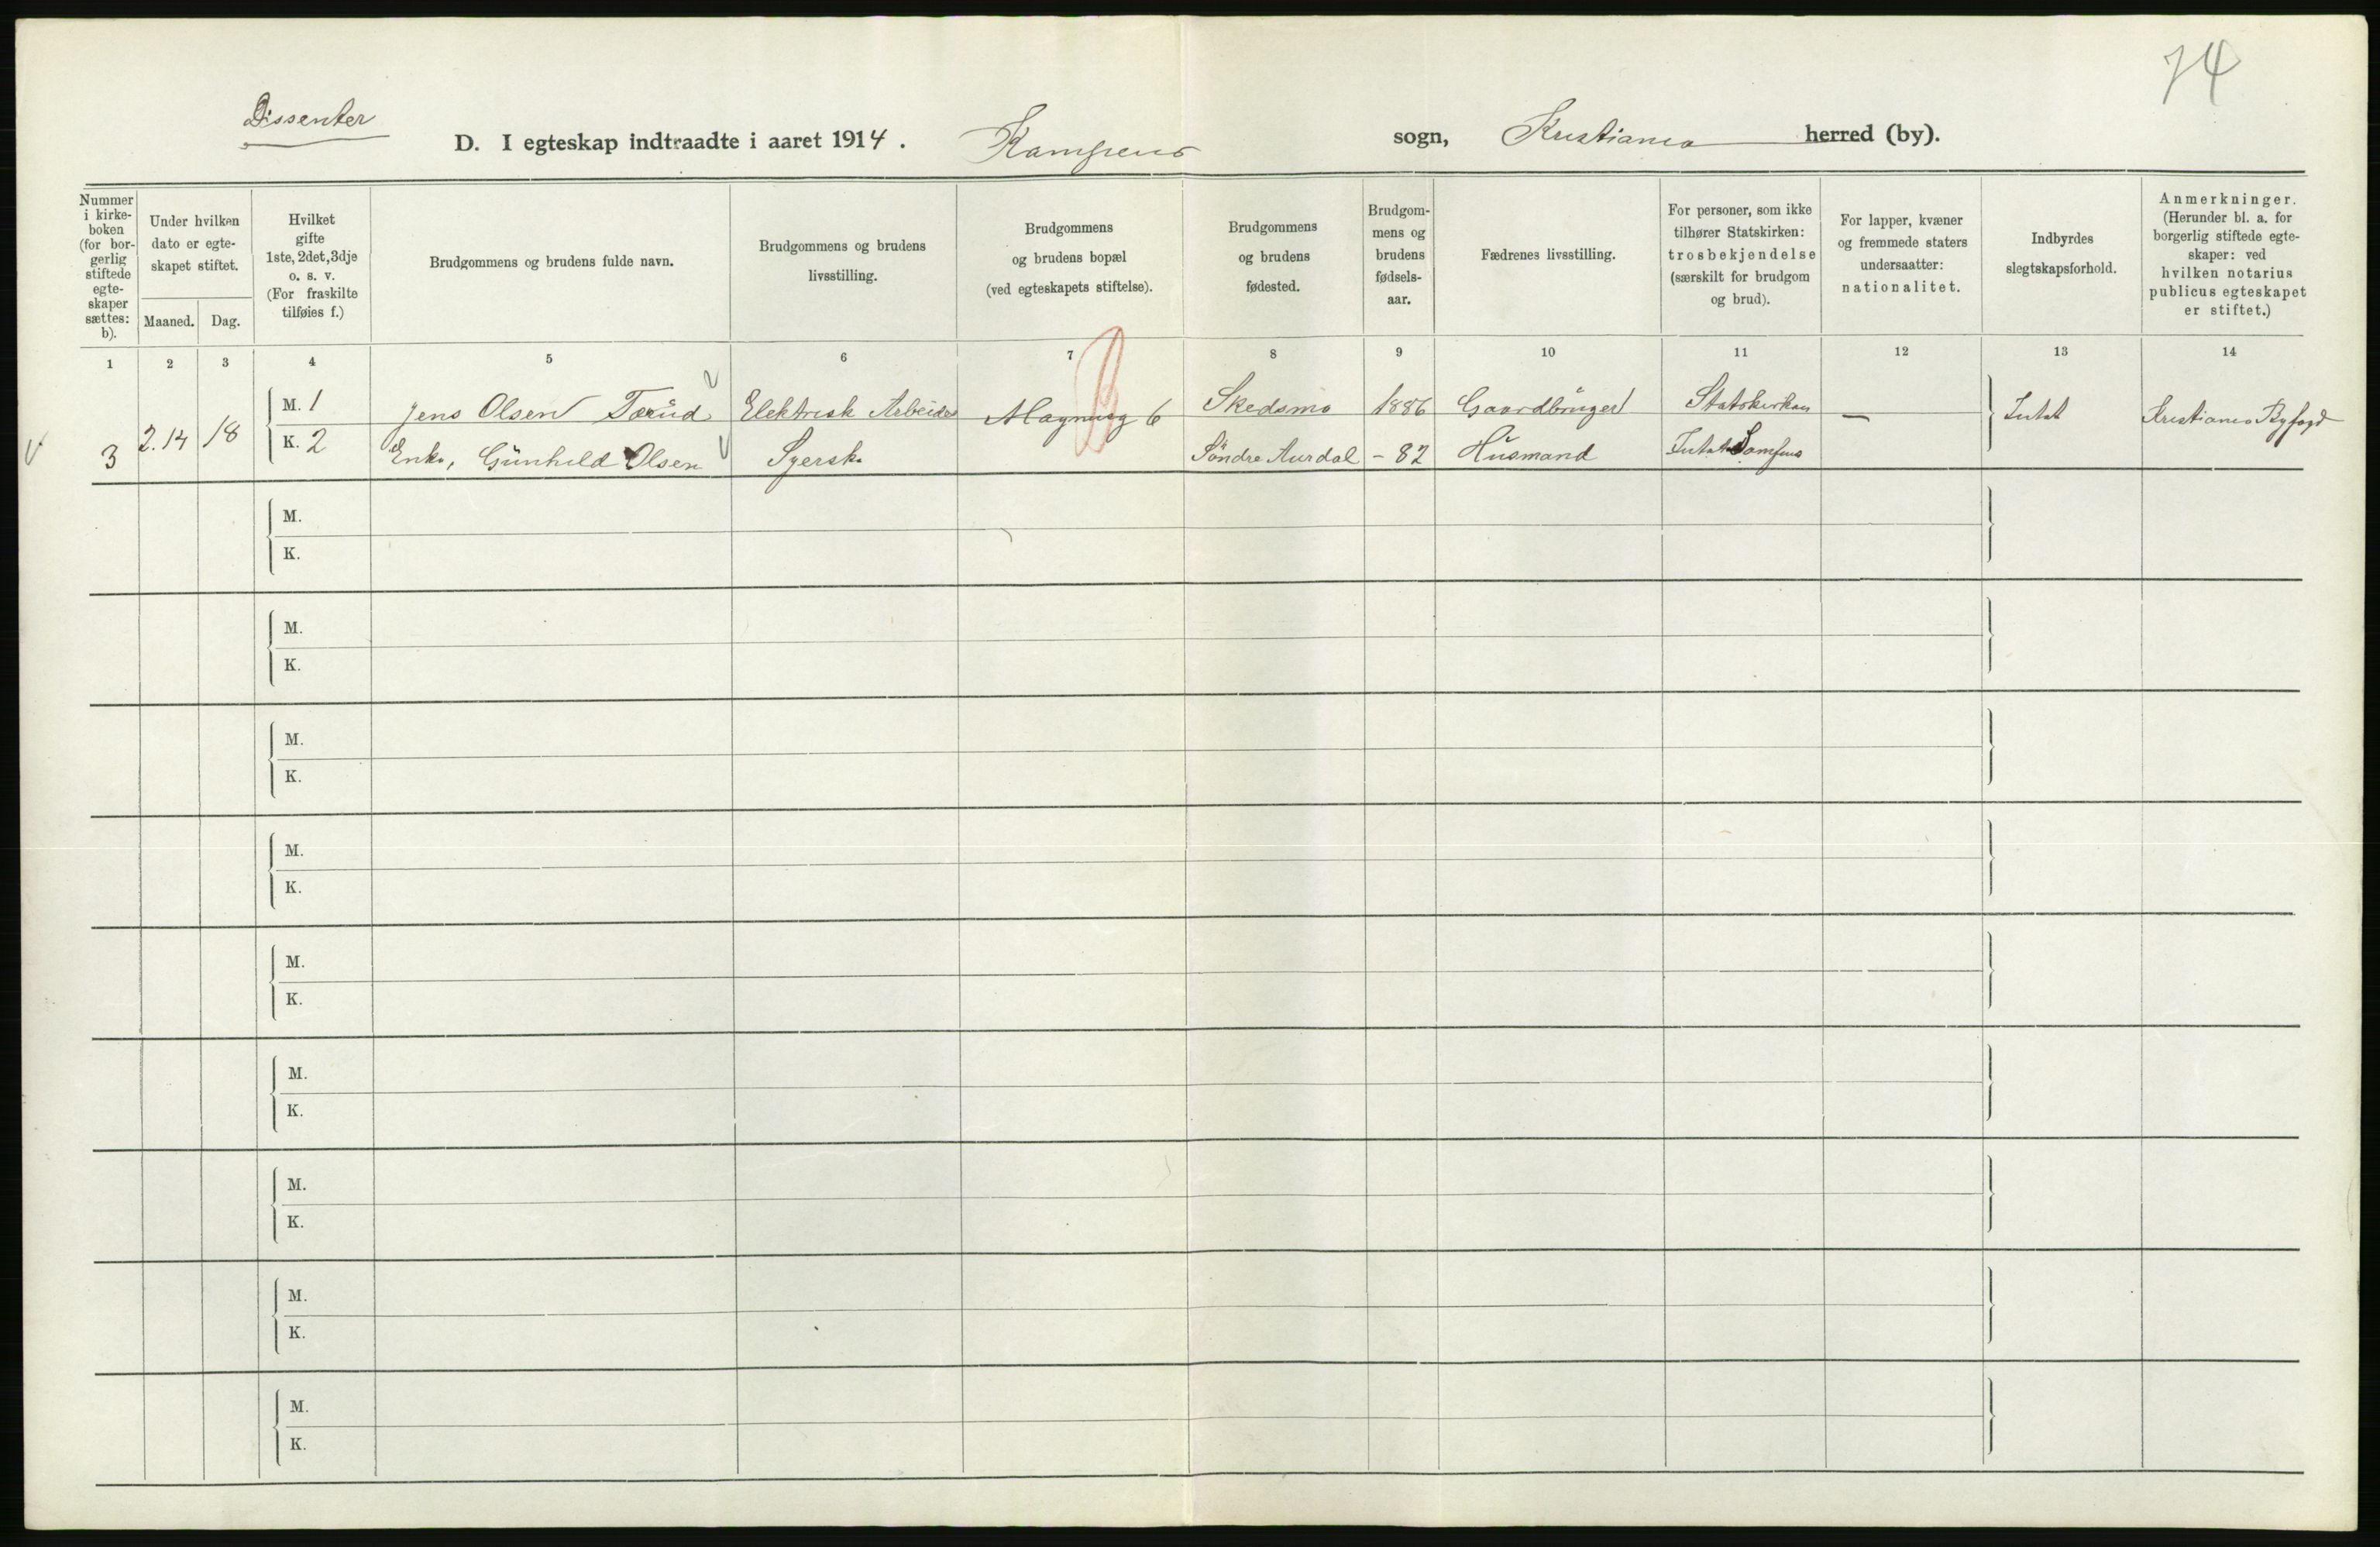 74
Dissenter
D. I egteskap indtraadte i aaret 1914. Kampens sogn, Kristiania herred (by).
Nummer i kirke-boken (for bor-gerlig stiftede egte-skaper sættes: b).
Under hvilken dato er egte-skapet stiftet.
Maaned. Dag.
Hvilket gifte 1ste, 2det, 3dje o. s. v. (For fraskilte tilføies f.)
Brudgommens og brudens fulde navn.
Brudgommens og brudens livsstilling.
Brudgommens og brudens bopæl (ved egteskapets stiftelse).
Brudgommens og brudens fødested.
Brudgom-mens og brudens fødsels-aar.
Fædrenes livsstilling.
For personer, som ikke tilhører Statskirken: trosbekjendelse (særskilt for brudgom og brud).
For lapper, kvæner og fremmede staters undersaatter: nationalitet.
Indbyrdes slegtskapsforhold.
Anmerkninger. (Herunder bl. a. for borgerlig stiftede egte-skaper: ved hvilken notarius publicus egteskapet er stiftet.)
1 2 3 4 5 6 7 8 9 10 11 12 13 14
M. 1 Jens Olsen Tærud Elektrisk Arbeider Magnusg 6 Skedsmo 1886 Gaardbruger Statskirken — Intet Kristiania Byfogd
3 2.14 18
K. 2 Enke, Gunhild Olsen Syerske Söndre Aurdal - 82 Husmand Intet Samfund
M.
K.
M.
K.
M.
K.
M.
K.
M.
K.
M.
K.
M.
K.
M.
K.
M.
K.